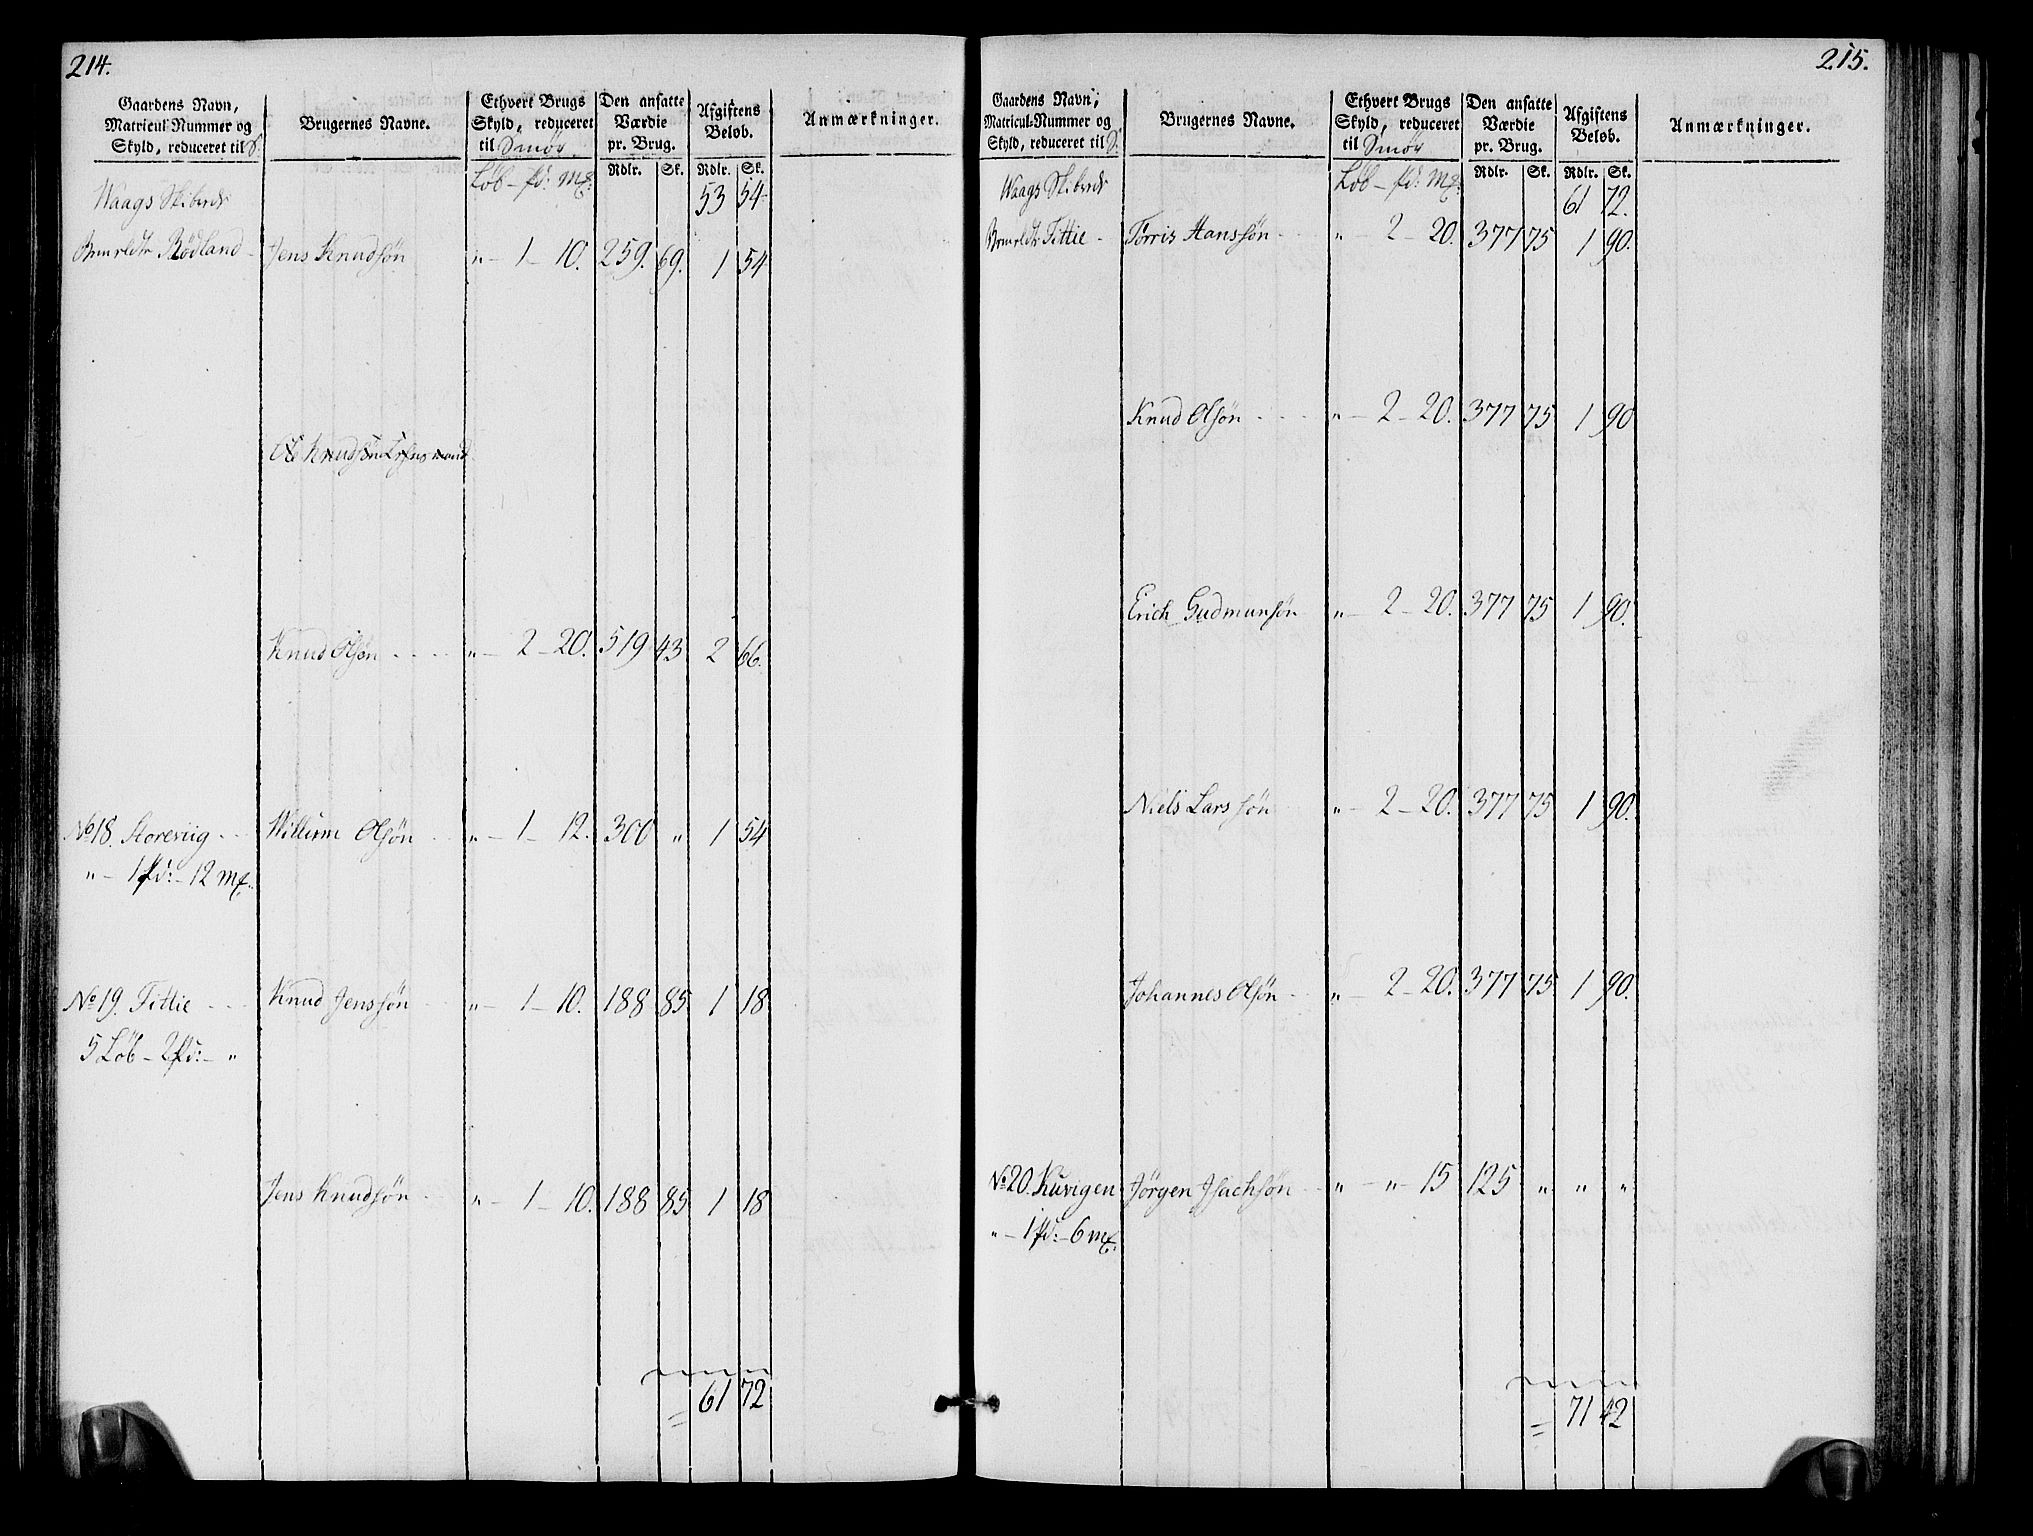 214.
Gaardens Navn, Matricul-Nummer og Skyld, reduceret til S.
Brugernes Navne.
Ethvert Brugs Skyld, reduceret til Smör
Den ansatte Værdie pr. Brug.
Afgiftens Beløb.
Anmærkninger.
Løb - pd: Mk:
Rdlr. Sk. Rdlr. Sk.
Waags Skibrede 53 54
Rödland - Jens Knudsön " - 1 - 10. 259. 69. 1 54
Ole Knudsön
Knud Olsön - - - - " - 2 - 20. 519 43 2 66.
No 18. Storeviig - - Willum Olsön - " - 1 - 12. 300 " 1 54
" - 1 pd: - 12 mk.
No 19. Tittie - - - Knud Jenssön - " - 1 - 10. 188 85 1 18
5 Løb - 2 pd: - "
Jens Knudsön - " - 1 - 10. 188 85 1 18
= 61 72
215.
Gaardens Navn, Matricul-Nummer og Skyld, reduceret til S.
Brugernes Navne.
Ethvert Brugs Skyld, reduceret til Smör
Den ansatte Værdie pr. Brug.
Afgiftens Beløb.
Anmærkninger.
Løb - pd: Mk:
Rdlr. Sk. Rdlr. Sk.
Waags Skibrede 61 72.
Tittie - Torris Hanssön - " - 2 - 20. 377 75 1 90.
Knud Olsön - - - - " - 2 - 20. 377 75 1 90
Erich Gudmunsön " - 2 - 20. 377 75 1 90.
Niels Larssön " - 2 - 20. 377 75 1 90.
Johannes Olsön - - " - 2 - 20. 377 75 1 90.
No 20. Kuvigen Jörgen Isachsön - " - " - 15 125 " " "
" - 1 pd: - 6 mk.
= 71 42